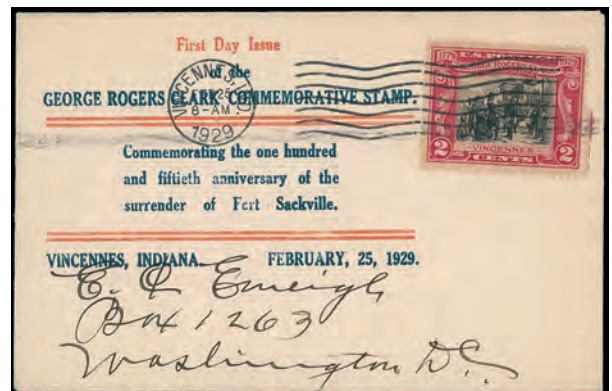 First Day Issue
of the
GEORGE ROGERS CLARK COMMEMORATIVE STAMP.
VINCENNES, IND.
FEB 25
8-AM
1929
VINCENNES
2 CENTS 2
Commemorating the one hundred
and fiftieth anniversary of the
surrender of Fort Sackville.
VINCENNES, INDIANA. FEBRUARY, 25, 1929.
E. C Emeigh
Box 1263
Washington D.C.